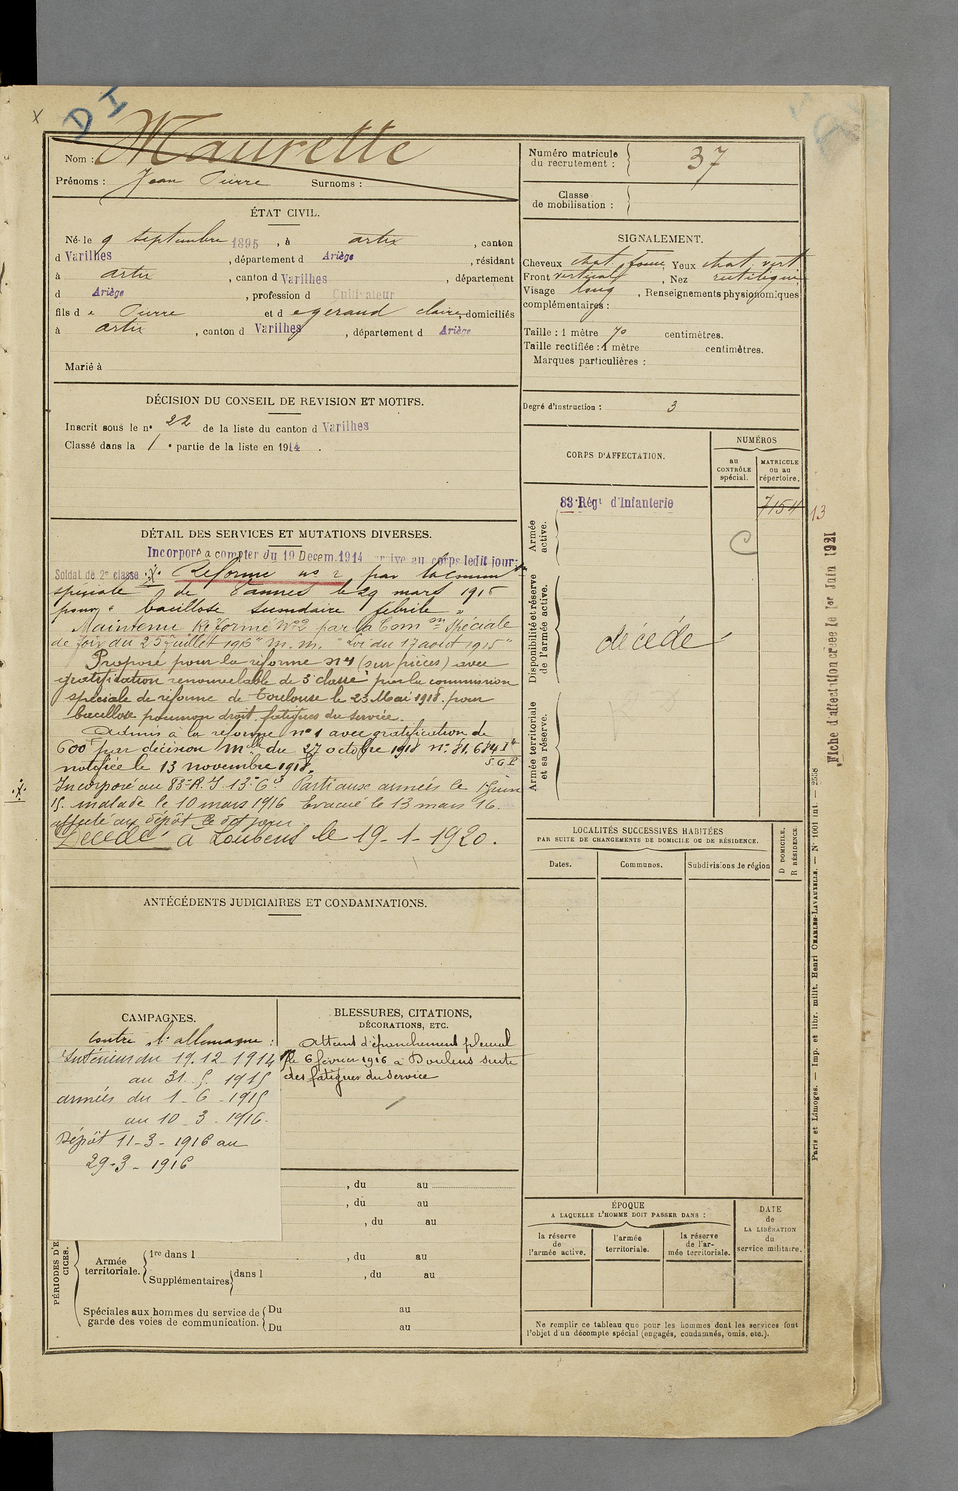 x
D I
Nom : Maurette
Prénoms : Jean Pierre Surnoms :
ÉTAT CIVIL.
Né le 9 septembre 1895, à artix, canton
d Varilhes, département d Ariège, résidant
à artix, canton d Varilhes, département
d Ariège, profession d Cultivateur
fils d e Pierre et d e claire, domiciliés
à artix, canton d Varilhes, département d Ariège
Marié à
DÉCISION DU CONSEIL DE REVISION ET MOTIFS.
Inscrit sous le n° 22 de la liste du canton d Varilhes
Classé dans la 1 e partie de la liste en 1914.
DÉTAIL DES SERVICES ET MUTATIONS DIVERSES.
Incorporé a compter du 19 Décem. 1914 arrive au corps ledit jour:
Soldat de 2e classe. Réforme n° 2 par la Comm
spéciale de Vannes le 29 mars 1916
pour " bacillose fébrile "
Maintenu Réformé N°2 par la Comon Spéciale
de Foix du 25 juillet 1916 " Loi du 17 août 1915 "
Proposé pour la réforme n°1 (sur pièces) avec
gratification renouvelable de 5e classe par la commission
spéciale de réforme de Toulouse le 23 Mai 1918 pour
bacillose poumon droit, fatigues du service.
Admis à la réforme n° 1 avec gratification de
600 f par décision Mlle du 27 octobre 1918 n° 81.684
notifiée le 13 novembre 1918.
Incorporé au 83e R.I. 13e Cie Parti aux armées le 1 Juin
15. malade le 10 mars 1916 Evacué le 13 mars 16.
affecté au dépôt le dit jour.
Décédé à Loubens le 19-1-1920.
ANTÉCÉDENTS JUDICIAIRES ET CONDAMNATIONS.
CAMPAGNES.
Contre l'allemagne :
Intérieur du 19.12.1914
au 31.5.1915
armées du 1-6-1915
au 10-3-1916.
Dépôt 11-3-1916 au
29-3-1916
BLESSURES, CITATIONS,
DÉCORATIONS, ETC.
Atteint d'épanchement pleural
le 6 février 1916 à Doulens suite
des fatigues du service
, du au
, du au
, du au
PÉRIODES D'E
CICES.
Armée
territoriale.
1re dans l , du au
Supplémentaires dans l , du au
Spéciales aux hommes du service de
garde des voies de communication.
Du au
Du au
Numéro matricule
du recrutement : 37
Classe
de mobilisation :
SIGNALEMENT.
Cheveux chat. foncé, Yeux chat. vert
Front vertical, Nez rectiligne
Visage long, Renseignements physionomiques
complémentaires :
Taille : 1 mètre 70 centimètres.
Taille rectifiée : 1 mètre centimètres.
Marques particulières :
Degré d'instruction : 3
CORPS D'AFFECTATION.
NUMÉROS
au
CONTRÔLE
spécial.
MATRICULE
ou au
répertoire.
Armée
active.
83e Régt d'Infanterie
7154 13
C
Disponibilité et réserve
de l'armée active.
décédé
Armée territoriale
et sa réserve.
LOCALITÉS SUCCESSIVES HABITÉES
PAR SUITE DE CHANGEMENTS DE DOMICILE OU DE RÉSIDENCE.
Dates.
Communes.
Subdivisions de région
D DOMICILE.
R RÉSIDENCE
ÉPOQUE
A LAQUELLE L'HOMME DOIT PASSER DANS :
la réserve
de
l'armée active.
l'armée
territoriale.
la réserve
de l'ar-
mée territoriale.
DATE
de
LA LIBÉRATION
du
service militaire.
Ne remplir ce tableau que pour les hommes dont les services font
l'objet d'un décompte spécial (engagés, condamnés, omis, etc.).
Fiche d'affectation créée le 1er Juin 1921
Paris et Limoges. — Imp. et libr. milit. Henri CHARLES-LAVAUZELLE. — N° 1001 int. — 2558